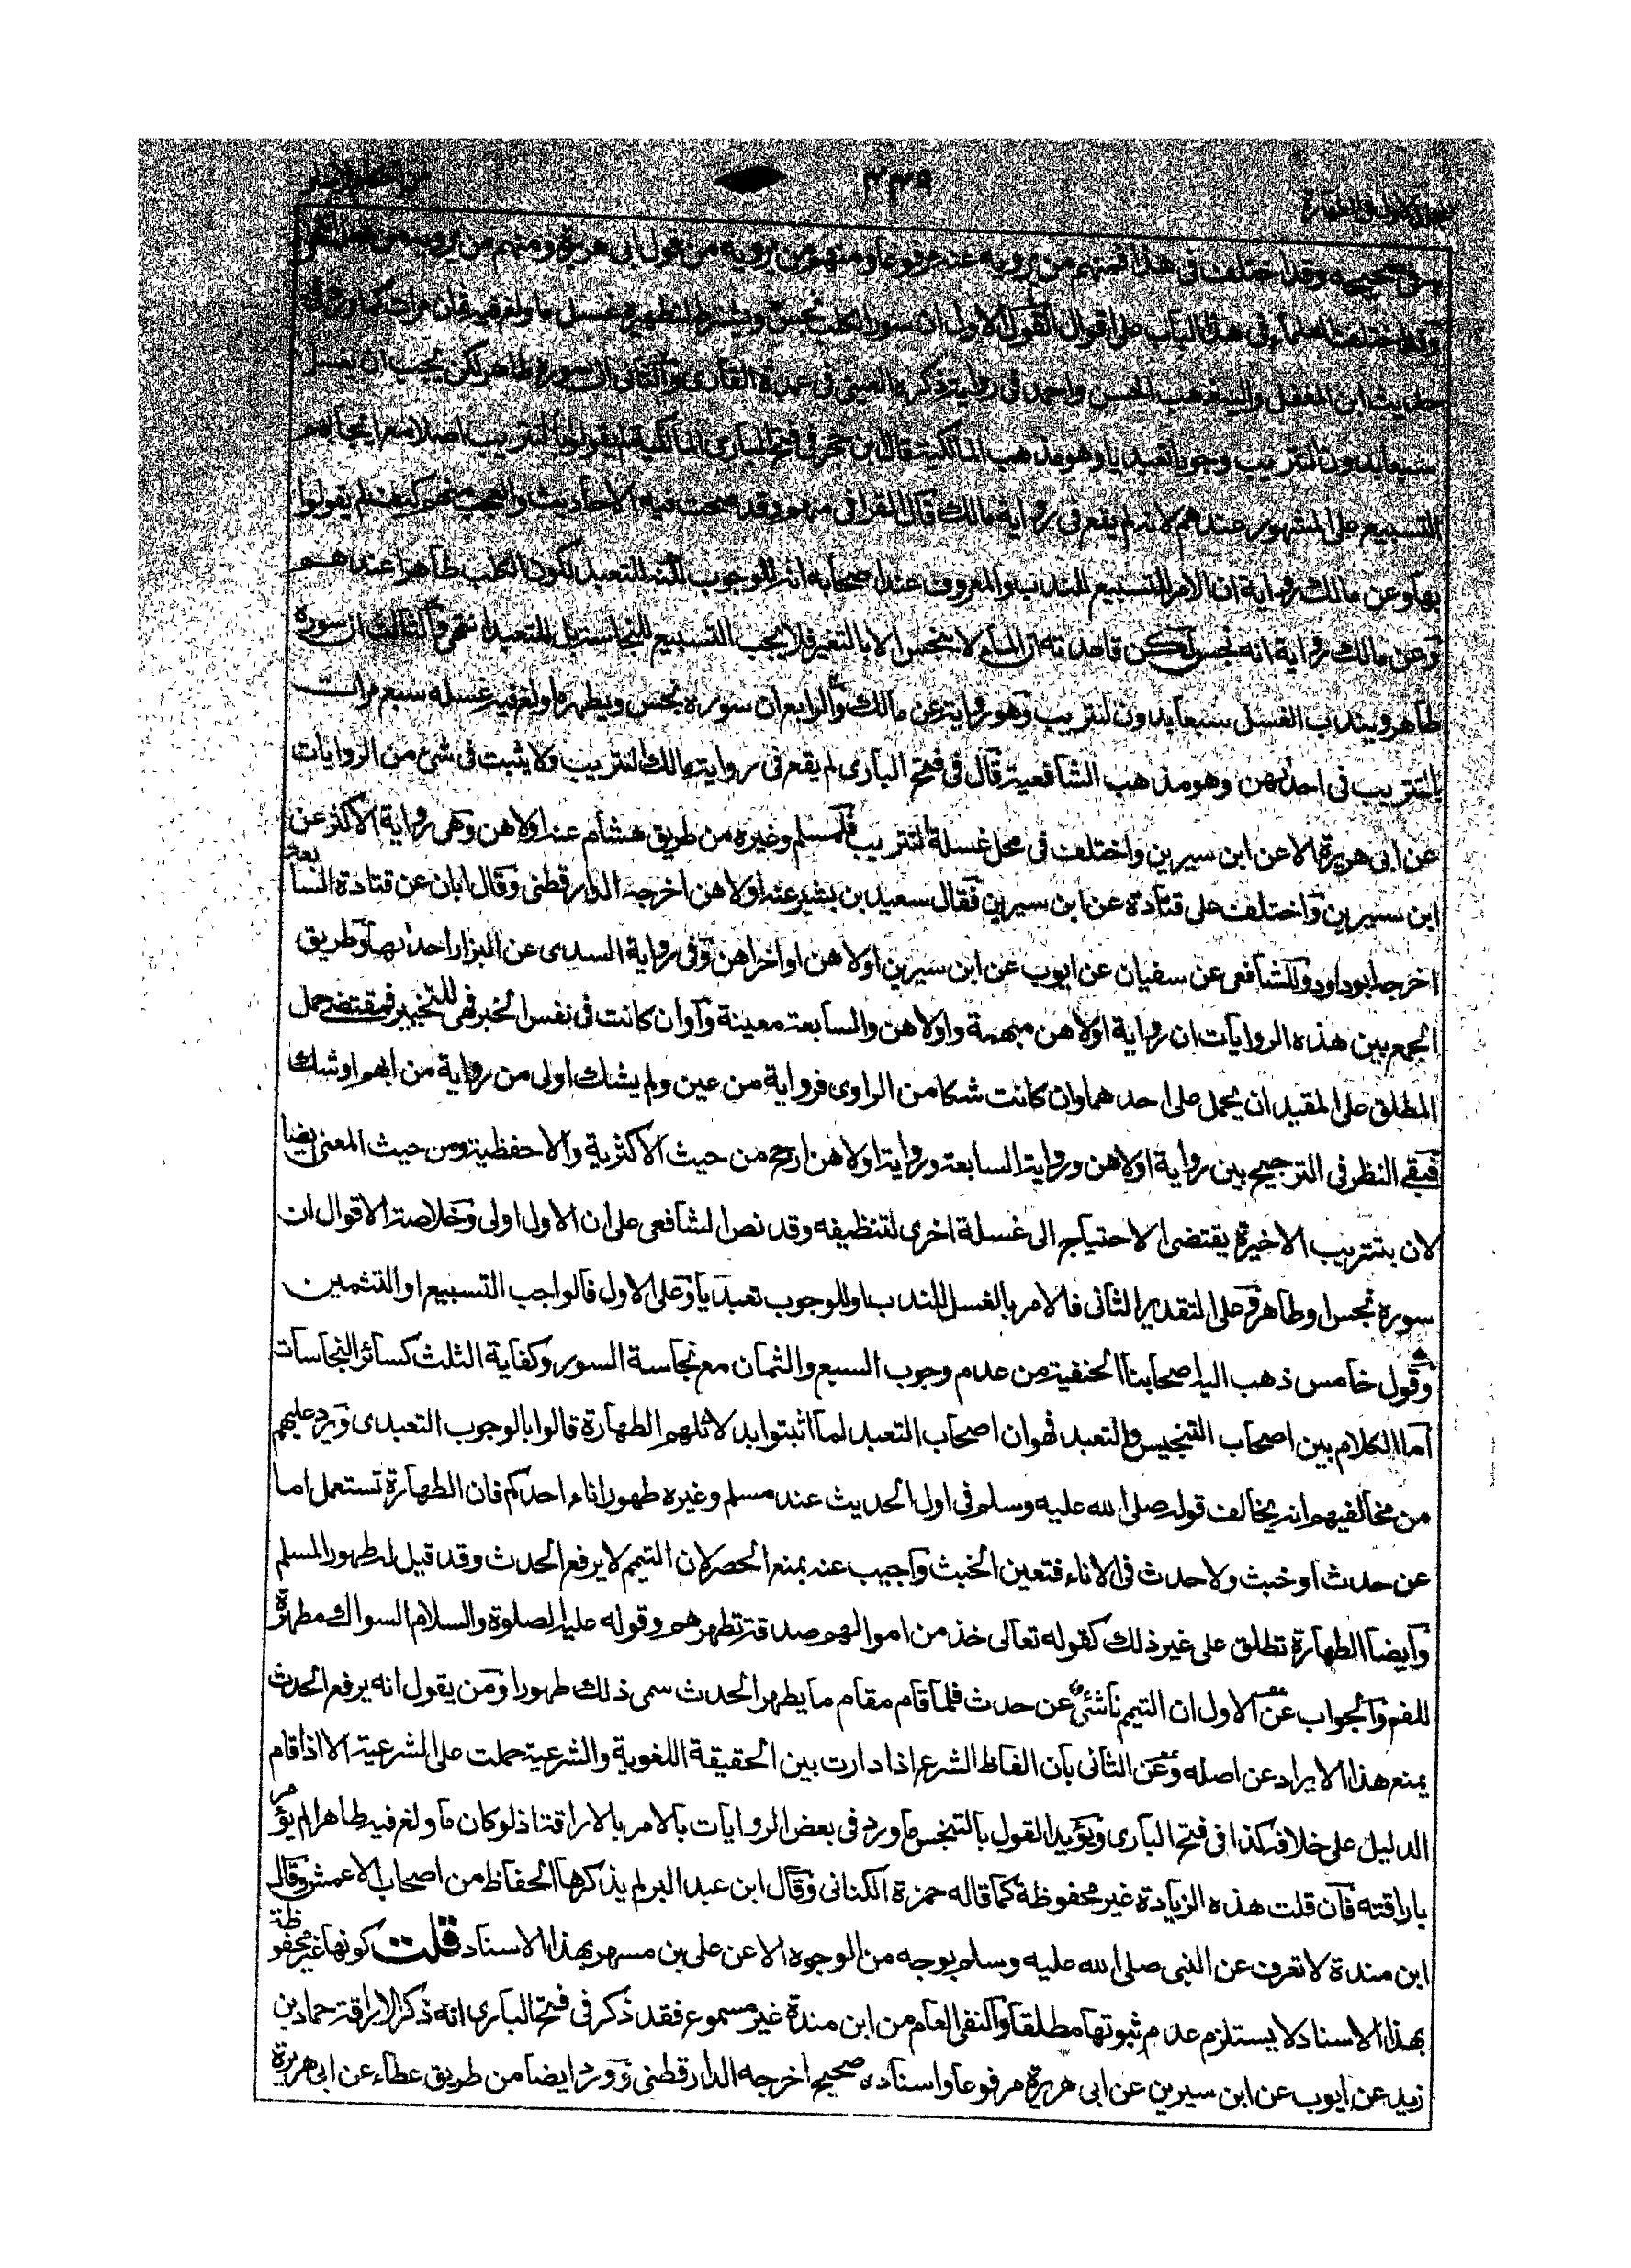 ٤٤٩
وقد اختلف فى هذا فمنهم من يرويه عنه مرفوعا ومنهم من يرويه من قول ابى هريرة ومنهم من يرويه من
وقد اختلف العلماء فى هذا الباب على اقوال القول الاول ان سور الكلب نجس ويشترط لتطهيره غسل ما ولغ فيه ثمان مرات كما ورد فى
حديث ابن المغفل واليه ذهب الحسن واحمد فى رواية ذكره العينى فى عمدة القارى والثانى ان سوره طاهر لكن يجب ان يغسل
سبعا بدون التتريب وجوبا تعبديا وهو مذهب المالكية قال ابن حجر فى فتح البارى المالكية لم يقولوا بالتتريب اصلا مع ايجابهم
التسبيع على المشهور عندهم لانه لم يقع فى رواية مالك قال القرافى منهم قد صحت فيه الاحاديث والعجب منهم كيف لم يقولوا
بها وعن مالك رواية ان الامر بالتسبيع للندب والمعروف عند اصحابه انه للوجوب لكنه للتعبد لكون الكلب طاهرا عندهم
وعن مالك رواية انه نجس لكن قاعدته ان الماء لا ينجس الا بالتغير فلا يجب التسبيع للنجاسة بل للتعبد انتهى والثالث ان سوره
طاهر ويندب الغسل سبعا بدون لتتريب وهو رواية عن مالك والرابع ان سوره نجس ويطهر ما ولغ فيه غسله سبع مرات
بالتتريب فى احدٰهن وهو مذهب الشافعية قال فى فتح البارى لم يقع فى رواية مالك التتريب ولا يثبت فى شئ من الروايات
عن ابى هريرة الا عن ابن سيرين واختلف فى محل غسلة التتريب فلمسلم وغيره من طريق هشام عنه اولاهن وهى رواية الاكثر عن
ابن سيرين واختلف على قتادة عن ابن سيرين فقال سعيد بن بشير عنه اولاهن اخرجه الدار قطنى وقال ابان عن قتادة السابعة
اخرجه ابو داود وللشافعى عن سفيان عن ايوب عن ابن سيرين اولاهن او اخراهن وفى رواية السدى عن البزار احدٰهن وطريق
الجمع بين هذه الروايات ان رواية اولاهن مبهمة واولاهن والسابعة معينة وآو ان كانت فى نفس الخبر فهى للتخيير فمقتضى حمل
المطلق على المقيد ان يحمل على احدهما وان كانت شكا من الراوى فرواية من عين ولم يشك اولى من رواية من ابهم او شك
فبقى النظر فى الترجيح بين رواية اولاهن ورواية السابعة ورواية اولاهن ارجح من حيث الاكثرية والاحفظية ومن حيث المعنى ايضا
لان بتتريب الاخيرة يقتضى الاحتياج الى غسلة اخرى لتنظيفه وقد نص الشافعى على ان الاول اولى وخلاصة الاقوال ان
سوره نجس او طاهر وعلى التقدير الثانى فالامر بالغسل للندب او للوجوب تعبديا وعلى الاول فالواجب التسبيع او التثمين
وقول خامس ذهب اليه اصحابنا الحنفية من عدم وجوب السبع والثمان مع نجاسة السور وكفاية الثلث كسائر النجاسات
اما الكلام بين اصحاب التنجيس والتعبد فهو ان اصحاب التعبد لما اثبتوا بدلائلهم الطهارة قالوا بالوجوب التعبدى ويرد عليهم
من مخالفيهم انه يخالف قوله صلى الله عليه وسلم فى اول الحديث عند مسلم وغيره طهور اناء احدكم فان الطهارة تستعمل اما
عن حدث او خبث ولا حدث فى الاناء فتعين الخبث وآجيب عنه بمنع الحصر لان التيمم لا يرفع الحدث وقد قيل له طهور المسلم
وآيضا الطهارة تطلق على غير ذلك كقوله تعالى خذ من اموالهم صدقة تطهرهم وقوله عليه الصلوة والسلام السواك مطهرة
للفم والجواب عن الاول ان التيمم ناشئ عن حدث فلما قام مقام ما يطهر الحدث سمى ذلك طهورا ومن يقول انه يرفع الحدث
يمنع هذا الايراد عن اصله وعن الثانى بان الفاظ الشرع اذا دارت بين الحقيقة اللغوية والشرعية حملت على الشرعية الا اذا قام
الدليل على خلافه كذا فى فتح البارى ويؤيد القول بالتنجس ما ورد فى بعض الروايات بالامر بالاراقة اذ لو كان ما ولغ فيه طاهرا لم يؤمر
باراقته فان قلت هذه الزيادة غير محفوظة كما قاله حمزة الكنانى وقال ابن عبد البر لم يذكرها الحفاظ من اصحاب الاعمش وقال
ابن مندة لا تعرف عن النبى صلى الله عليه وسلم بوجه من الوجوه الا عن على بن مسهر بهذا الاسناد قلت كونها غير محفوظة
بهذا الاسناد لا يستلزم عدم ثبوتها مطلقا والنفى العام من ابن مندة غير مسموع فقد ذكر فى فتح البارى انه ذكر الاراقة حماد بن
زيد عن ايوب عن ابن سيرين عن ابى هريرة مرفوعا واسناده صحيح اخرجه الدار قطنى وورد ايضا من طريق عطاء عن ابى هريرة